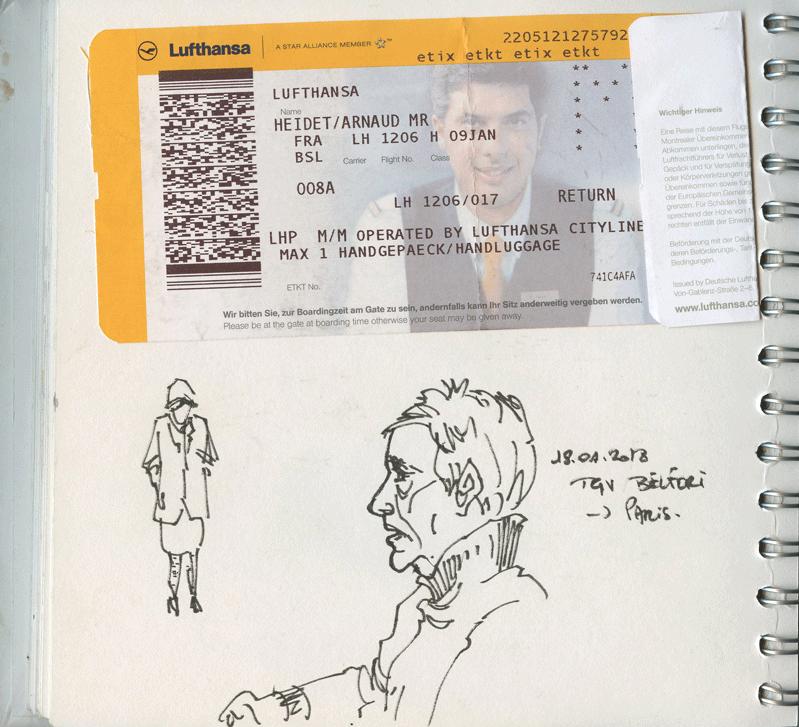 Lufthansa
A STAR ALLIANCE MEMBER ™
2205121275792
etix etkt etix etkt
LUFTHANSA
Name
HEIDET/ARNAUD MR
FRA LH 1206 H 09JAN
BSL Carrier Flight No. Class
008A
LH 1206/017 RETURN
LHP M/M OPERATED BY LUFTHANSA CITYLINE
MAX 1 HANDGEPAECK/HANDLUGGAGE
741C4AFA
ETKT No.
Wir bitten Sie, zur Boardingzeit am Gate zu sein, andernfalls kann Ihr Sitz anderweitig vergeben werden.
Please be at the gate at boarding time otherwise your seat may be given away.
Wichtiger Hinweis
Eine Reise mit diesem Flugs
Montrealer Übereinkommen
Abkommen unterliegen, die
Luftfrachtführers für Verlust
Gepäck und für Verspätung
oder Körperverletzungen
Übereinkommen sowie
der Europäischen Gemeins
grenzen. Für Schäden bis
sprechend der Höhe von
rechten entfällt der Einwan
Beförderung mit der Deuts
deren Beförderungs-, Tari
Bedingungen.
Issued by Deutsche Lufthan
Von-Gablenz-Straße 2-6,
www.lufthansa.co
18.01.2013
TGV BELFORT
-> PARIS.